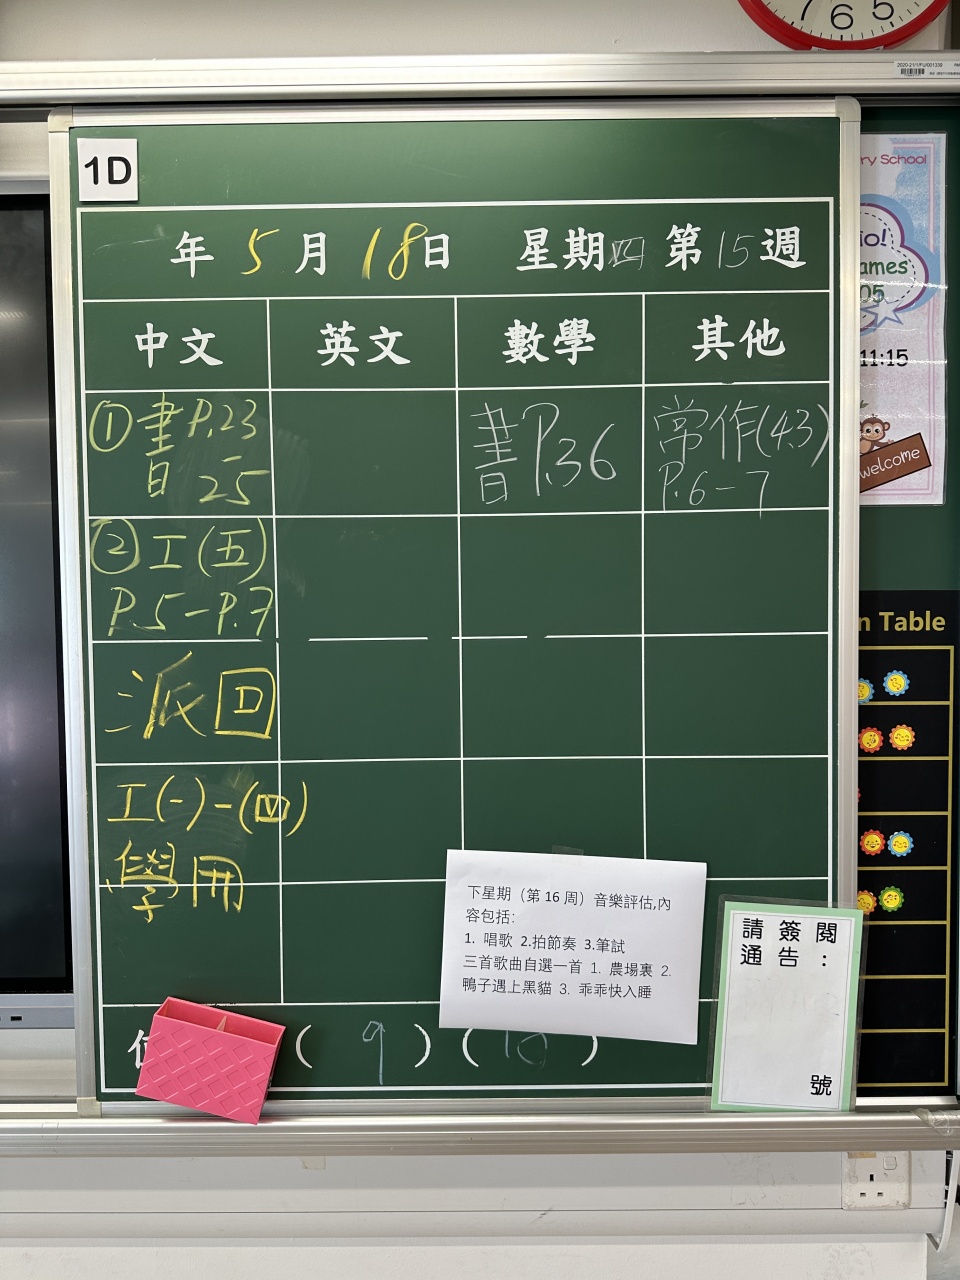 7 6 5
2020-21/1/FU/001339
1D
年 5 月 18 日 星期四 第 15 週
中文 英文 數學 其他
① 書 P.23
日 - 25
書 P.36
日
常作(4.3)
P.6-7
② 工(五)
P.5-P.7
派回
工(一)-(四)
學冊
下星期（第 16 周）音樂評估,內
容包括:
1. 唱歌 2.拍節奏 3.筆試
三首歌曲自選一首 1. 農場裏 2.
鴨子遇上黑貓 3. 乖乖快入睡
( 9 ) ( 10 )
請簽閱
通告:
號
ry School
io!
ames
05
11:15
welcome
n Table